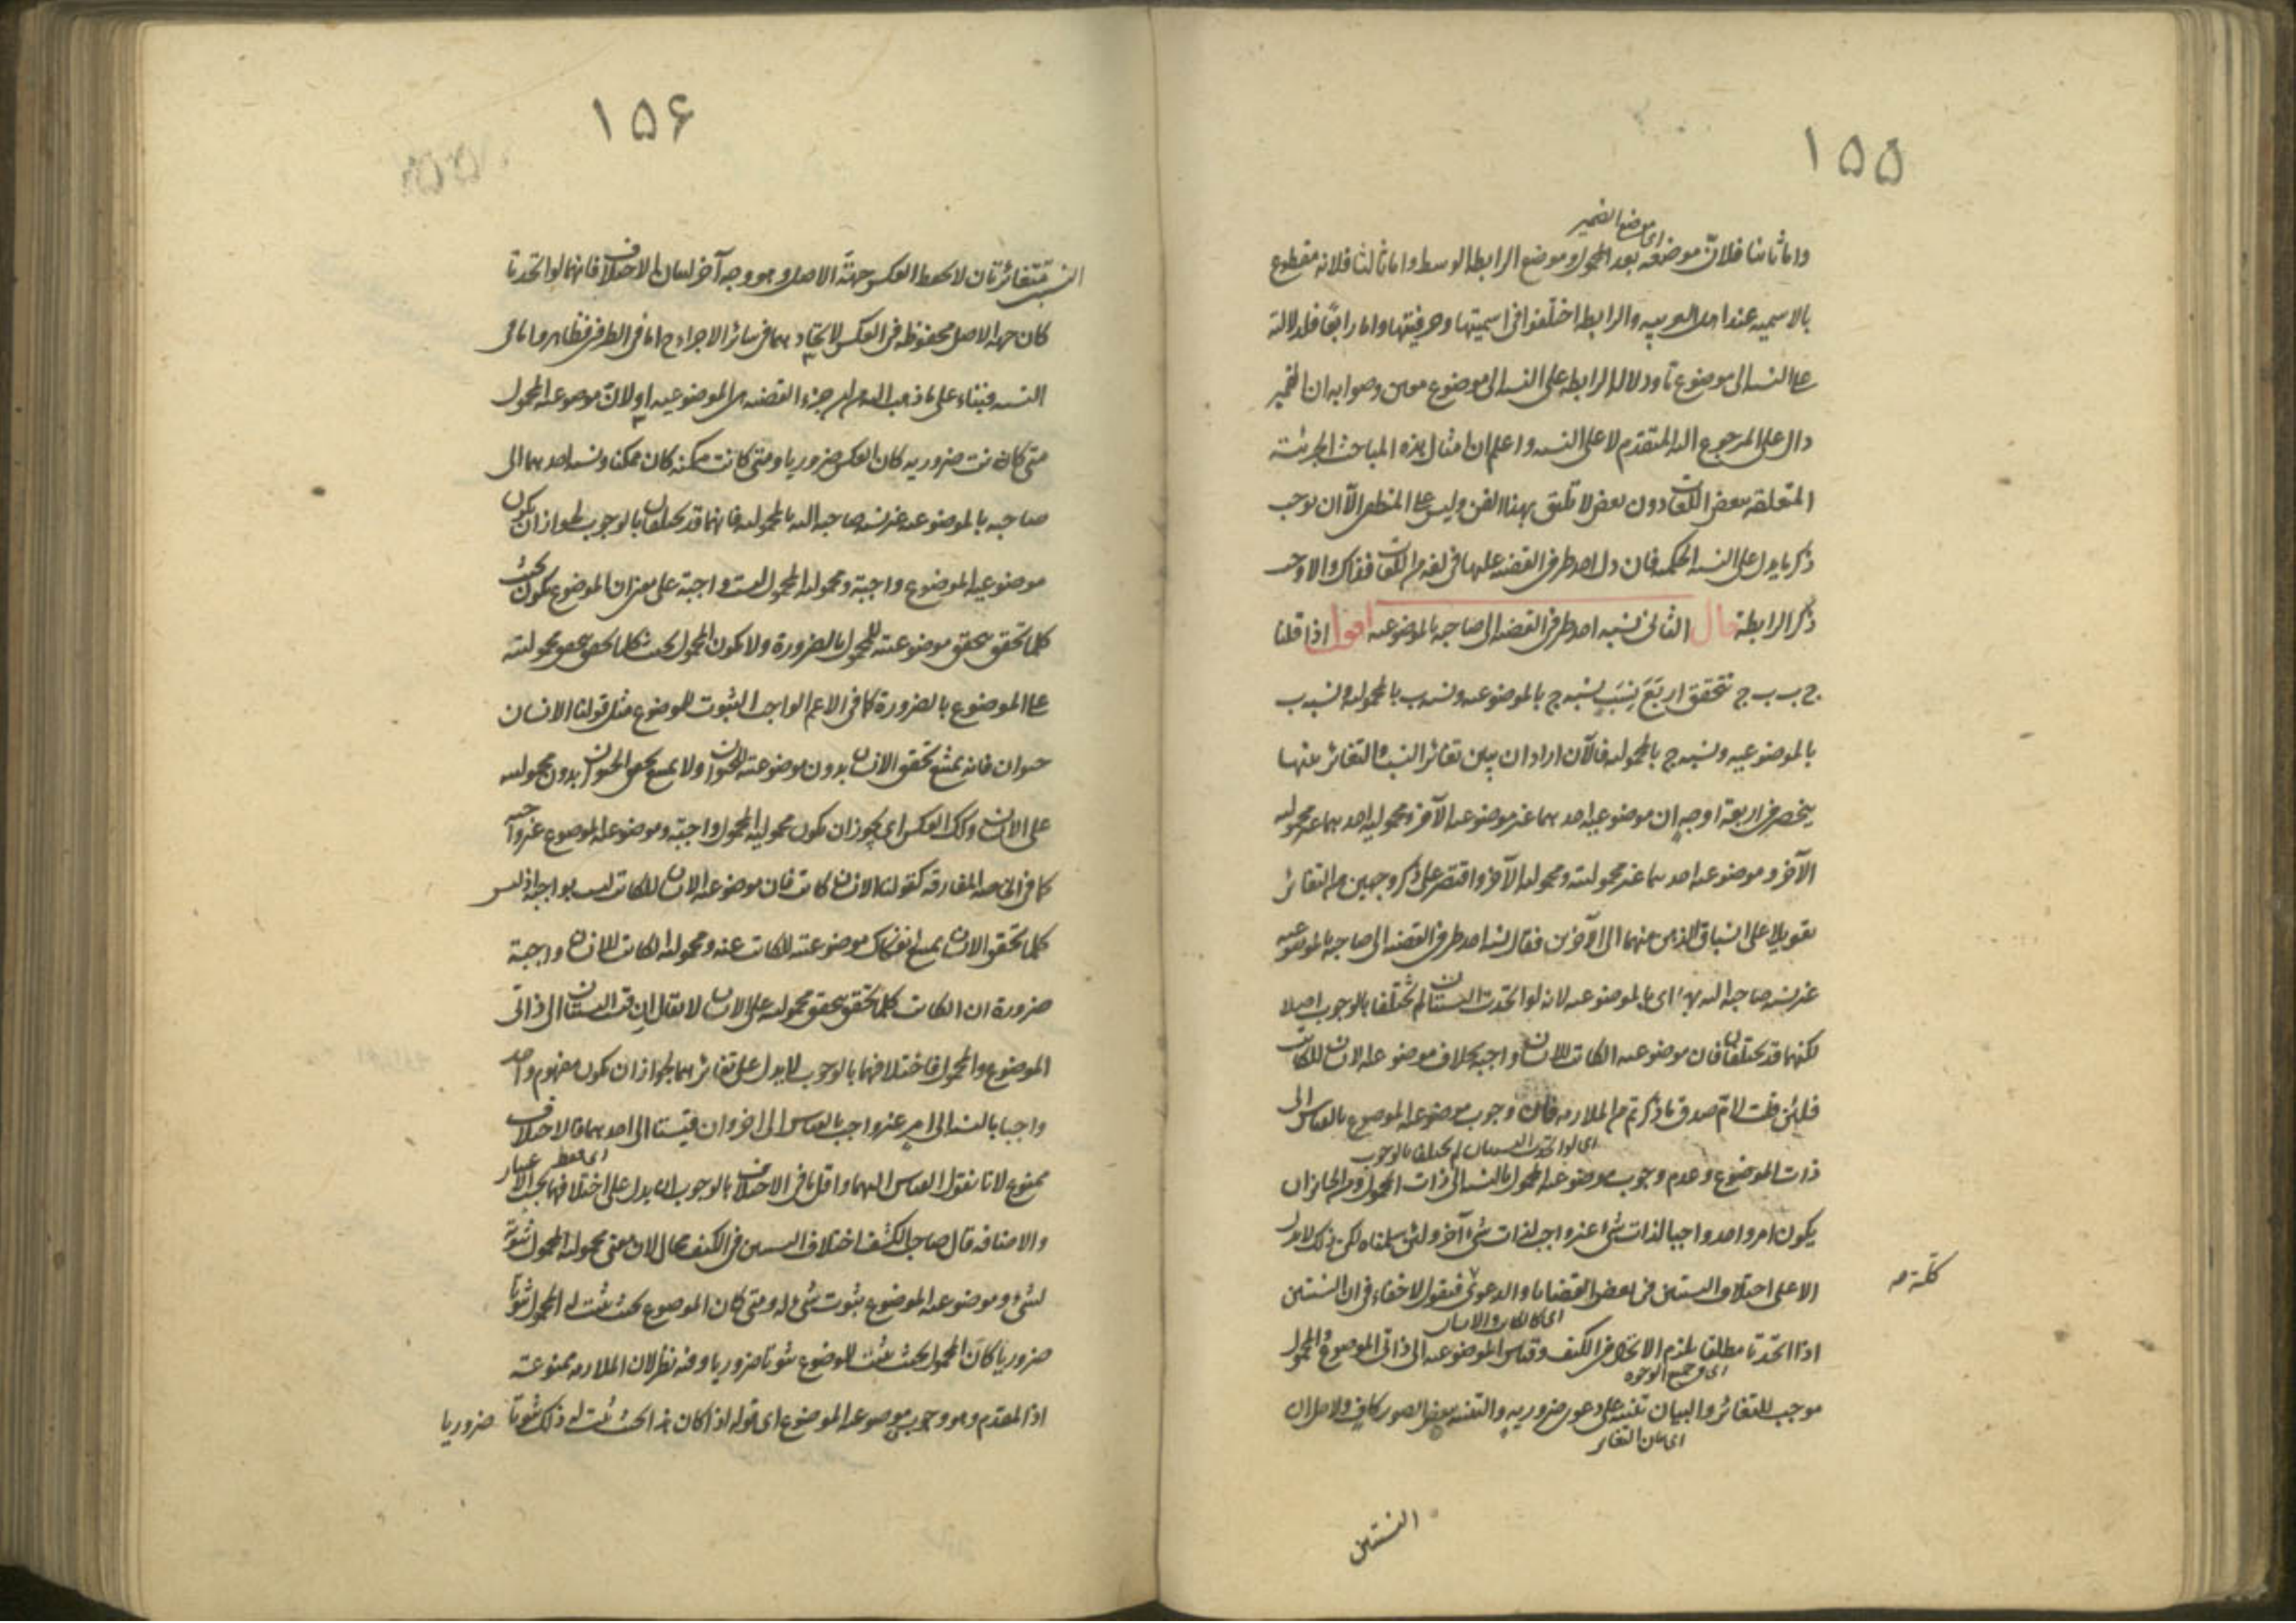 ١٥٥
اى موضع الضمير
واما ثانيا فلانّ موضعه بعد المحمول وموضع الرابطة الوسط واما ثالثا فلانه مقطوع
بالاسمية عند اهل العربيه والرابطة اختلفوا فى اسميتها وحرفيتها واما رابعًا فلدلالته
على النسبة الى موضوع ما ودلالة الرابطة على النسبة الى موضوع معين وصوابه ان الضمير
دال على المرجوع اليه المتقدم لا على النسبة واعلم ان امثال هذه المباحث الجزئية
المتعلقة ببعض اللغات دون بعض لا تليق بهذا الفن وليس على المنطقى الّا ان يوجب
ذكر ما يدل على النسبة الحكمية فان دل احد طرفى القضية عليها فى لغة من اللغات فذاك والا وجب
ذكر الرابطة قال الثانى نسبة احد طرفى القضية الى صاحبه بالموضوعية اقول اذا قلنا
ج ب ب ج تتحقق اربَعَ نِسَبٍ نسبة ج بالموضوعية ونسبة ب بالمحمولية ونسبة ب
بالموضوعيه ونسبة ج بالمحمولية فالآن اراد ان يبين تغائر النسب والتغائر بينها
ينحصر فى اربعة اوجه ان موضوعية احدهما غير موضوعية الآخر ومحمولية احدهما غير محمولية
الآخر وموضوعية احدهما غير محموليته ومحمولية الآخر واقتصر على ذكر وجهين من التغائر
تعويلا على انسباق الذهن منهما الى الآخرين فقال نسبة احد طرفى القضية الى صاحبه بالموضوعية
غير نسبة صاحبه اليه بها اى بالموضوعية لانه لو اتحدت النسبتان لم تختلفا بالوجوب اصلا
لكنهما قد يختلفان فان موضوعية الكاتب للانسان واجبة بخلاف موضوعية الانسان للكاتب
فلئن قلت لا تم صدق ما ذكرتم من الملازمة فان وجوب موضوعية الموضوع بالقياس الى
اى لو اتحدت النسبتان لم يختلفا بالوجوب
ذات الموضوع وعدم وجوب موضوعية المحمول بالنسبة الى ذات المحمول ومن الجايز ان
يكون امر واحد واجبا لذات شئ غير واجب لذات شئ آخر ولئن سلمناه لكن ذلك لا يدل
الا على اختلاف النسبتين فى بعض القضايا والدعوى كليّة فنقول لا خفاء فى ان النسبتين
كلية صح
اى كالكاتب والانسان
اذا اتحدتا مطلقا يلزم الاتحاد فى الكيف وقياس الموضوعية الى ذاتى الموضوع والمحمول
اى من جميع الوجوه
موجب للتغائر والبيان تنبيه على دعوى ضروريه والتنبيه ببعض الصور كاف والحاصل ان
اى بيان التغاير
النسبتين
١٥۶
النسبتين متغائرتان لا يحفظ العكس جهة الاصل وهو وجه آخر لبيان الاختلاف فانهما لو اتحدتا
كان جهة الاصل محفوظة فى العكس لاتحادهما فى سائر الاجزاء اما فى الطرفين فظاهر واما فى
النسبة فبناء على ما ذهب اليه من ان جزء القضية هى الموضوعيه اولا لانّ موضوعية المحمول
متى كانت ضروريه كان العكس ضروريا ومتى كانت ممكنه كان ممكنا ونسبة احدهما الى
صاحبه بالموضوعية غير نسبة صاحبه اليه بالمحمولية فانهما قد يختلفان بالوجوب لجواز ان يكون
موضوعية الموضوع واجبة ومحمولية المحمول ليست واجبة على معنى ان الموضوع يكون بحيث
كلما تحقق يتحقق موضوعيته للمحمول بالضرورة ولا يكون المحمول بحيث كلما تحقق يتحقق محموليته
على الموضوع بالضرورة كما فى الاعم الواجب الثبوت للموضوع مثل قولنا الانسان
حيوان فانه يمتنع تحقق الانسان بدون موضوعيته للحيوان ولا يمتنع تحقق الحيوان بدون محموليته
على الانسان وكذلك العكس اى يجوز ان يكون محمولية المحمول واجبة وموضوعية الموضوع غير واجبة
كما فى الخاصة المفارقة كقولنا الانسان كاتب فان موضوعية الانسان للكاتب ليست بواجبة اذ ليس
كلما تحقق الانسان يمتنع انفكاك موضوعيته للكاتب عنه ومحمولية الكاتب للانسان واجبة
ضرورة ان الكاتب كلما تحقق يتحقق محموليته على الانسان لا يقال ان قيست النسبتان الى ذاتى
الموضوع والمحمول فاختلافهما بالوجوب لا يدل على تغائرهما لجواز ان يكون مفهوم واحد
واجبا بالنسبة الى امر غير واجب بالقياس الى اخر وان قيستا الى احدهما فالاختلاف
ممنوع لانا نقول القياس اليهما واقل ما فى الاختلاف بالوجوب ان يدل على اختلافهما بحسب الاعتبار
اى فقط
والاضافة قال صاحب الكشف اختلاف النسبتين فى الكيف محال لان معنى محمولية المحمول ثبوته
لشئ وموضوعية الموضوع ثبوت شئ له ومتى كان الموضوع بحيث يثبت له المحمول ثبوتا
ضروريا كان المحمول بحيث يثبت للموضوع ثبوتا ضروريا وفيه نظر لان الملازمة ممنوعة
اذ المقدم وهو وجوب موضوعية الموضوع اى قوله اذا كان هذا بحيث يثبت له ذلك ثبوتا ضروريا